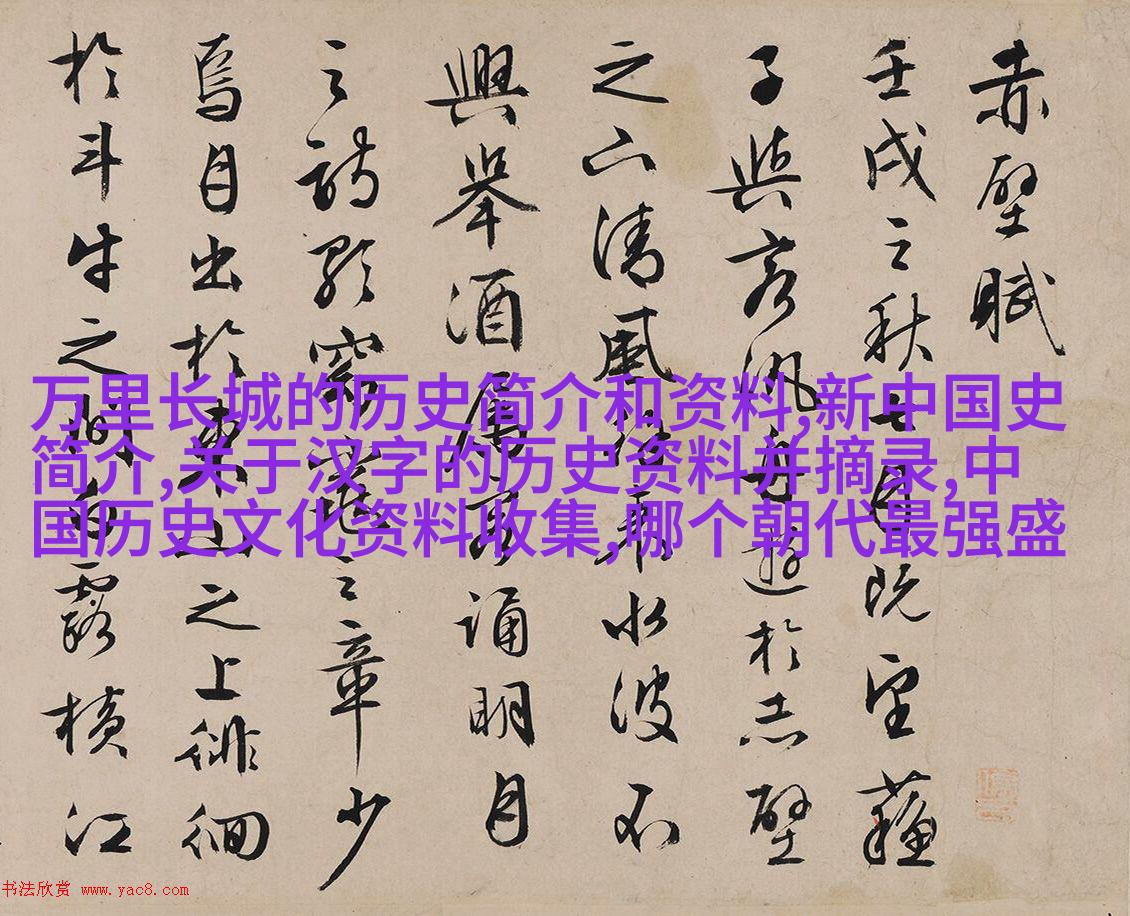 赤壁賦
壬戌之秋七月既望蘇
子與客汎舟遊於赤壁
之下清風徐來水波不
興舉酒屬客誦明月
之詩歌窈窕之章少
焉月出於東山之上徘徊
於斗牛之間白露橫江
万里长城的历史简介和资料,新中国史
简介,关于汉字的历史资料并摘录,中
国历史文化资料收集,哪个朝代最强盛
书法欣赏 www.yac8.com